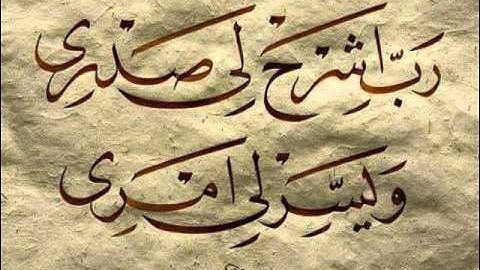 رَبِّ اشْرَحْ لِي صَدْرِي
وَيَسِّرْ لِي أَمْرِي